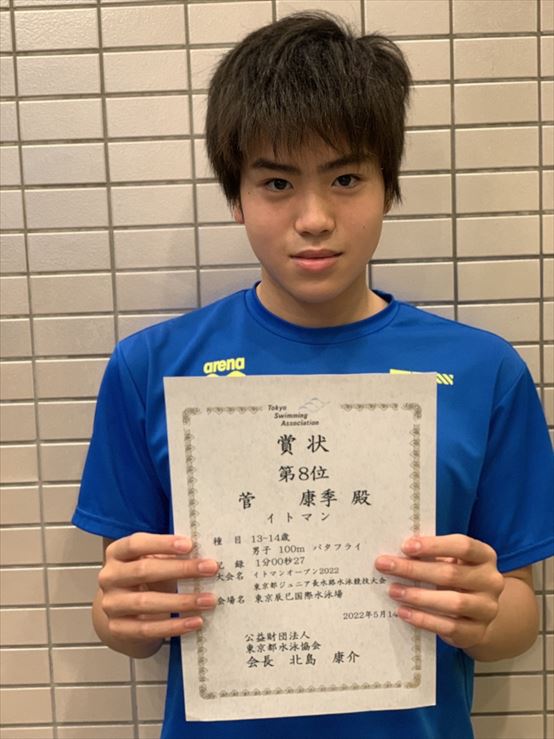 arena
Tokyo
Swimming
Association
賞状
第8位
菅 康季 殿
イトマン
種 目 13~14歳
男子 100m バタフライ
記 録 1分00秒27
大会名 イトマンオープン2022
東京都ジュニア長水路水泳競技大会
会場名 東京辰巳国際水泳場
2022年5月14
公益財団法人
東京都水泳協会
会長 北島 康介